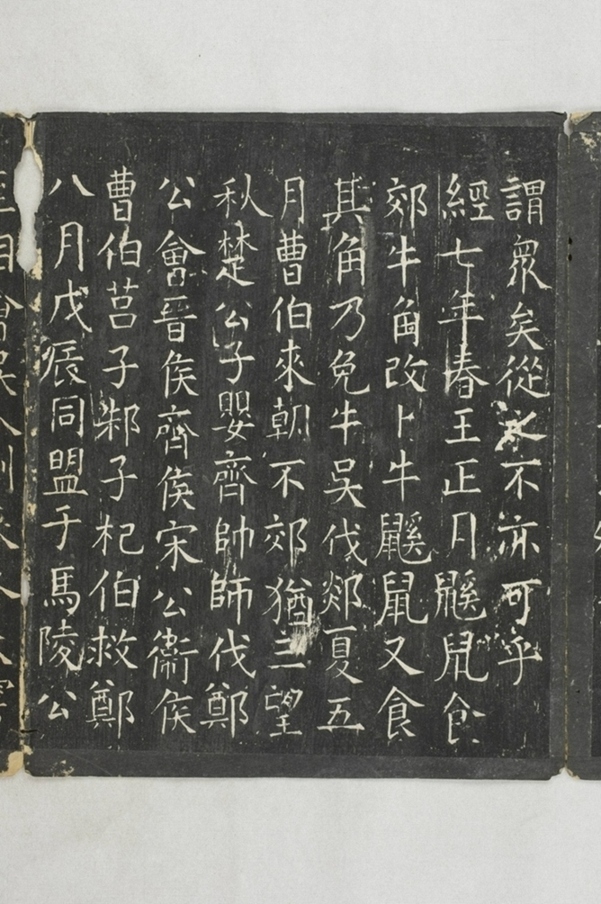 謂衆矣從之不亦可乎
經七年春王正月鼷鼠食
郊牛角改卜牛鼷鼠又食
其角乃免牛吳伐郯夏五
月曹伯來朝不郊猶三望
秋楚公子嬰齊帥師伐鄭
公會晉侯齊侯宋公衞侯
曹伯莒子邾子杞伯救鄭
八月戊辰同盟于馬陵公